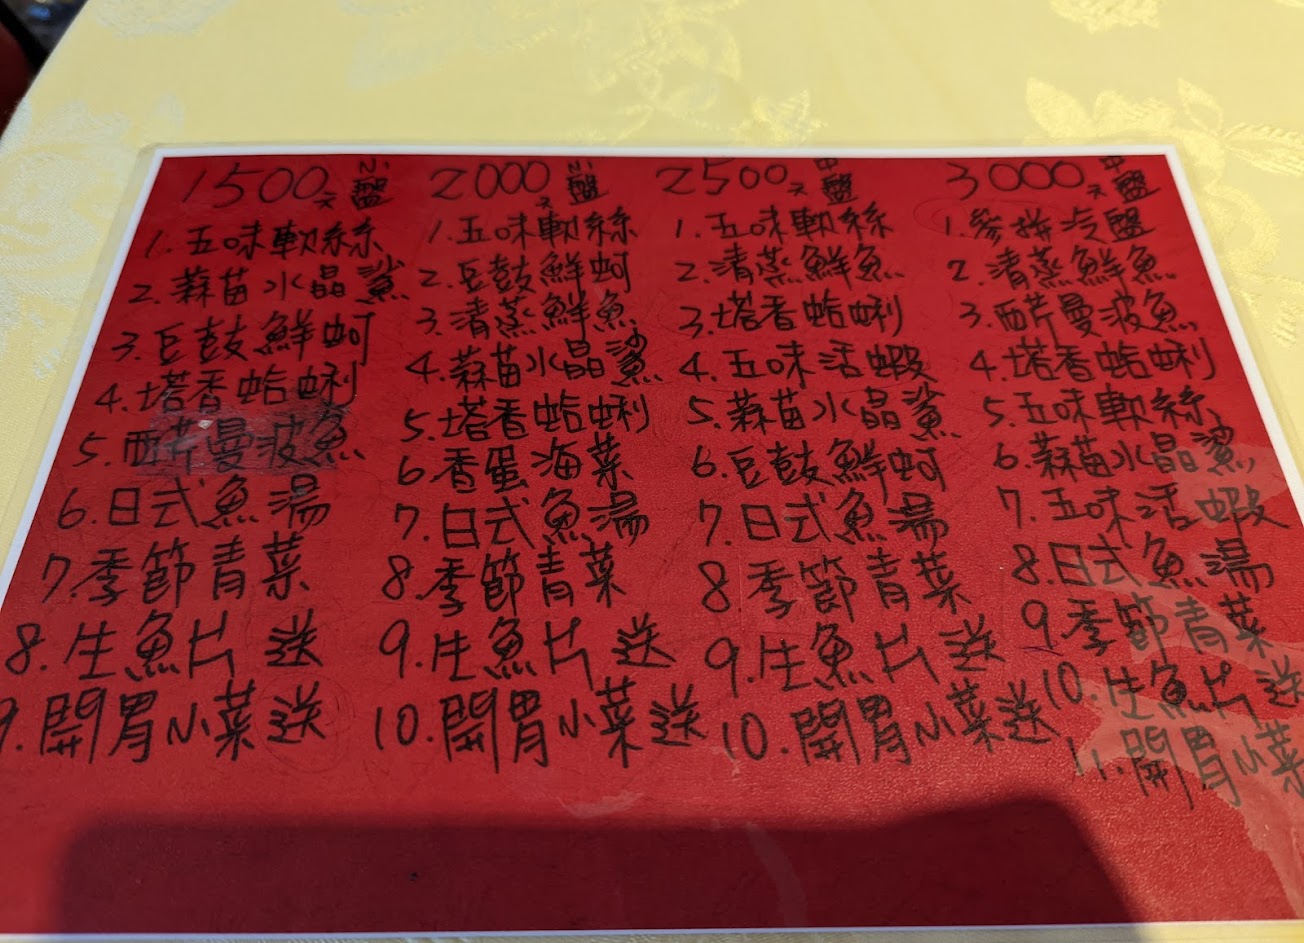 1500元 小盤
1. 五味軟絲
2. 蒜苗水晶鯊
3. 豆鼓鮮蚵
4. 塔香蛤蜊
5. 西芹曼波魚
6. 日式魚湯
7. 季節青菜
8. 生魚片 送
9. 開胃小菜 送
2000元 小盤
1. 五味軟絲
2. 豆鼓鮮蚵
3. 清蒸鮮魚
4. 蒜苗水晶鯊
5. 塔香蛤蜊
6. 香蛋海菜
7. 日式魚湯
8. 季節青菜
9. 生魚片 送
10. 開胃小菜 送
2500元 中盤
1. 五味軟絲
2. 清蒸鮮魚
3. 塔香蛤蜊
4. 五味活蝦
5. 蒜苗水晶鯊
6. 豆鼓鮮蚵
7. 日式魚湯
8 季節青菜
9. 生魚片 送
10. 開胃小菜送
3000元 中盤
1. 參拼冷盤
2. 清蒸鮮魚
3. 西芹曼波魚
4. 塔香蛤蜊
5. 五味軟絲
6. 蒜苗水晶鯊
7. 五味活蝦
8. 日式魚湯
9. 季節青菜
10. 生魚片 送
11. 開胃小菜